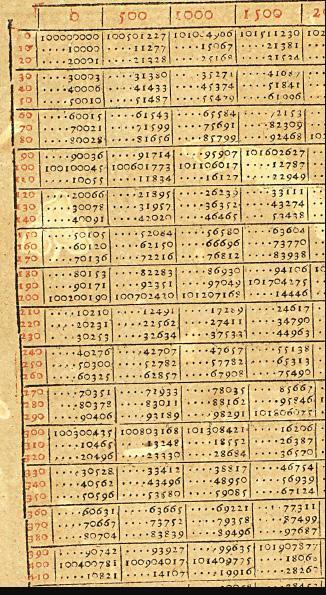 0 500 1000 1500 2
0 100000000 100501227 101004966 101511230 10
10 ....10000 ....11277 ....15067 ....21381
20 ....20001 ....21328 ....25168 ....31534
30 ....30003 ....31380 ....35271 ....41687
40 ....40006 ....41433 ....45374 ....51841
50 ....50010 ....51487 ....55479 ....61996
60 ....60015 ....61543 ....65584 ....72153
70 ....70021 ....71599 ....75691 ....82309
80 ....80028 ....81656 ....85799 ....92468 10
90 ....90036 ....91714 ....95907 101602627
100 100100045 100601773 101106017 ....12787
110 ....10055 ....11834 ....16127 ....22949
120 ....20066 ....21895 ....26239 ....33111
130 ....30078 ....31957 ....36352 ....43274
140 ....40091 ....42020 ....46465 ....53438
150 ....50105 ....52084 ....56580 ....63604
160 ....60120 ....62150 ....66696 ....73770
170 ....70136 ....72216 ....76812 ....83938
180 ....80153 ....82283 ....86930 ....94106 10
190 ....90171 ....92351 ....97049 101704275
200 100200190 100702420 101207168 ....14446
210 ....10210 ....12491 ....17289 ....24617
220 ....20231 ....22562 ....27411 ....34790
230 ....30253 ....32634 ....37533 ....44963
240 ....40276 ....42707 ....47657 ....55138
250 ....50300 ....52782 ....57782 ....65313
260 ....60325 ....62857 ....67908 ....75490
270 ....70351 ....72931 ....78035 ....85667
280 ....80378 ....83011 ....88162 ....95846 10
290 ....90406 ....93189 ....98291 101806025
300 100300435 100803168 101308421 ....16206
310 ....10465 ....13248 ....18552 ....26387
320 ....20496 ....23330 ....28684 ....36570
330 ....30528 ....33412 ....38817 ....46754
340 ....40562 ....43496 ....48950 ....56939
350 ....50596 ....53580 ....59085 ....67124
360 ....60631 ....63665 ....69221 ....77311
370 ....70667 ....73752 ....79358 ....87499
380 ....80704 ....83839 ....89496 ....97687
390 ....90742 ....93927 ....99635 101907877
400 100400781 100904017 101409775 ....18068
410 ....10821 ....14107 ....19916 ....28260